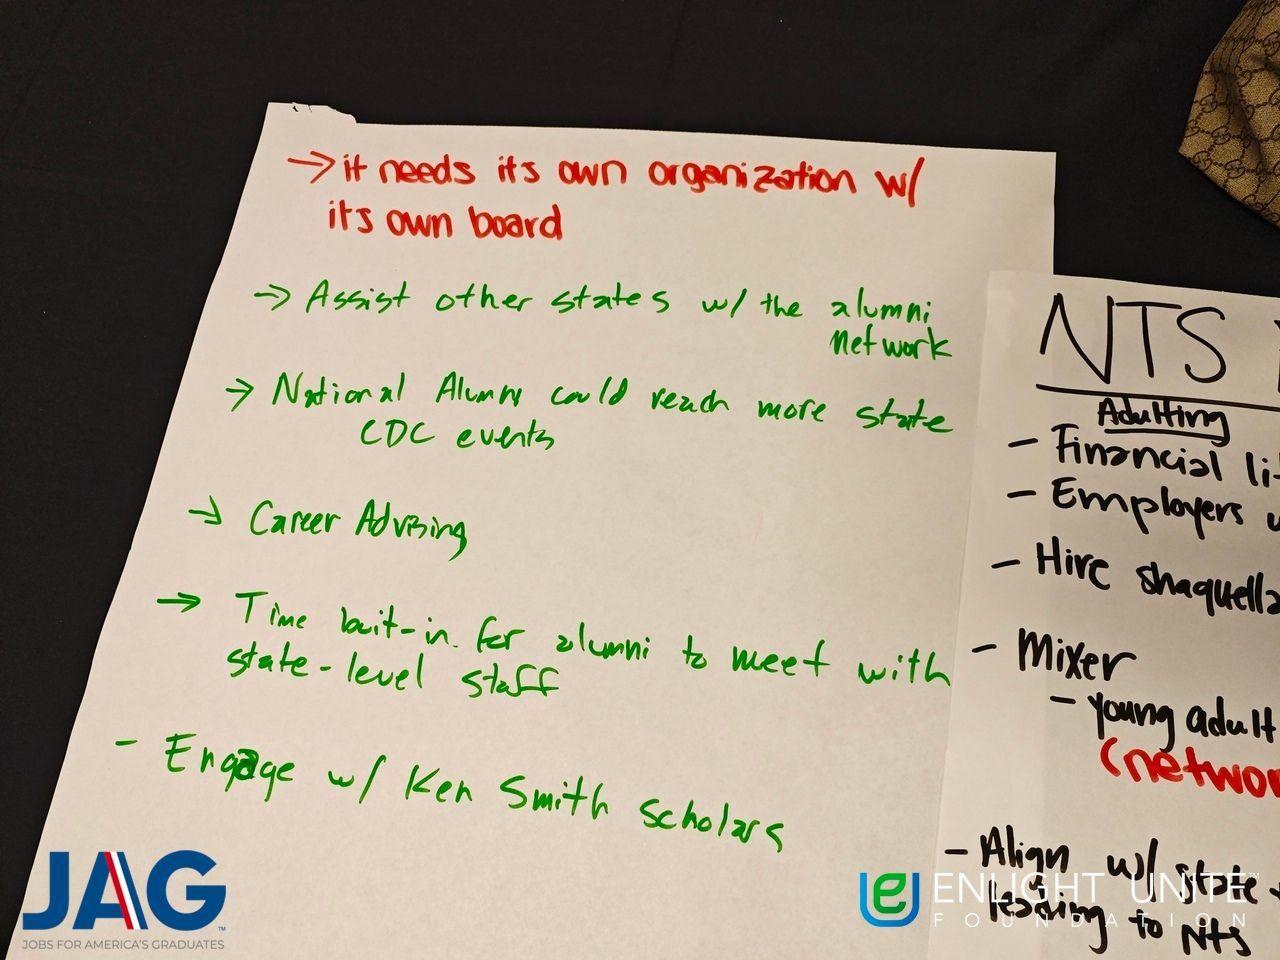 → it needs its own organization w/
its own board
→ Assist other states w/ the alumni
network
→ National Alumni could reach more state
CDC events
→ Career Advising
→ Time built-in for alumni to meet with
state-level staff
- Engage w/ Ken Smith Scholars
NTS
Adulting
- Financial li
- Employers
- Hire shaquella
- Mixer
- young adult
(networ
- Align w/ state
leading to NTS
JAG
JOBS FOR AMERICA'S GRADUATES
ENLIGHT UNITE
FOUNDATION